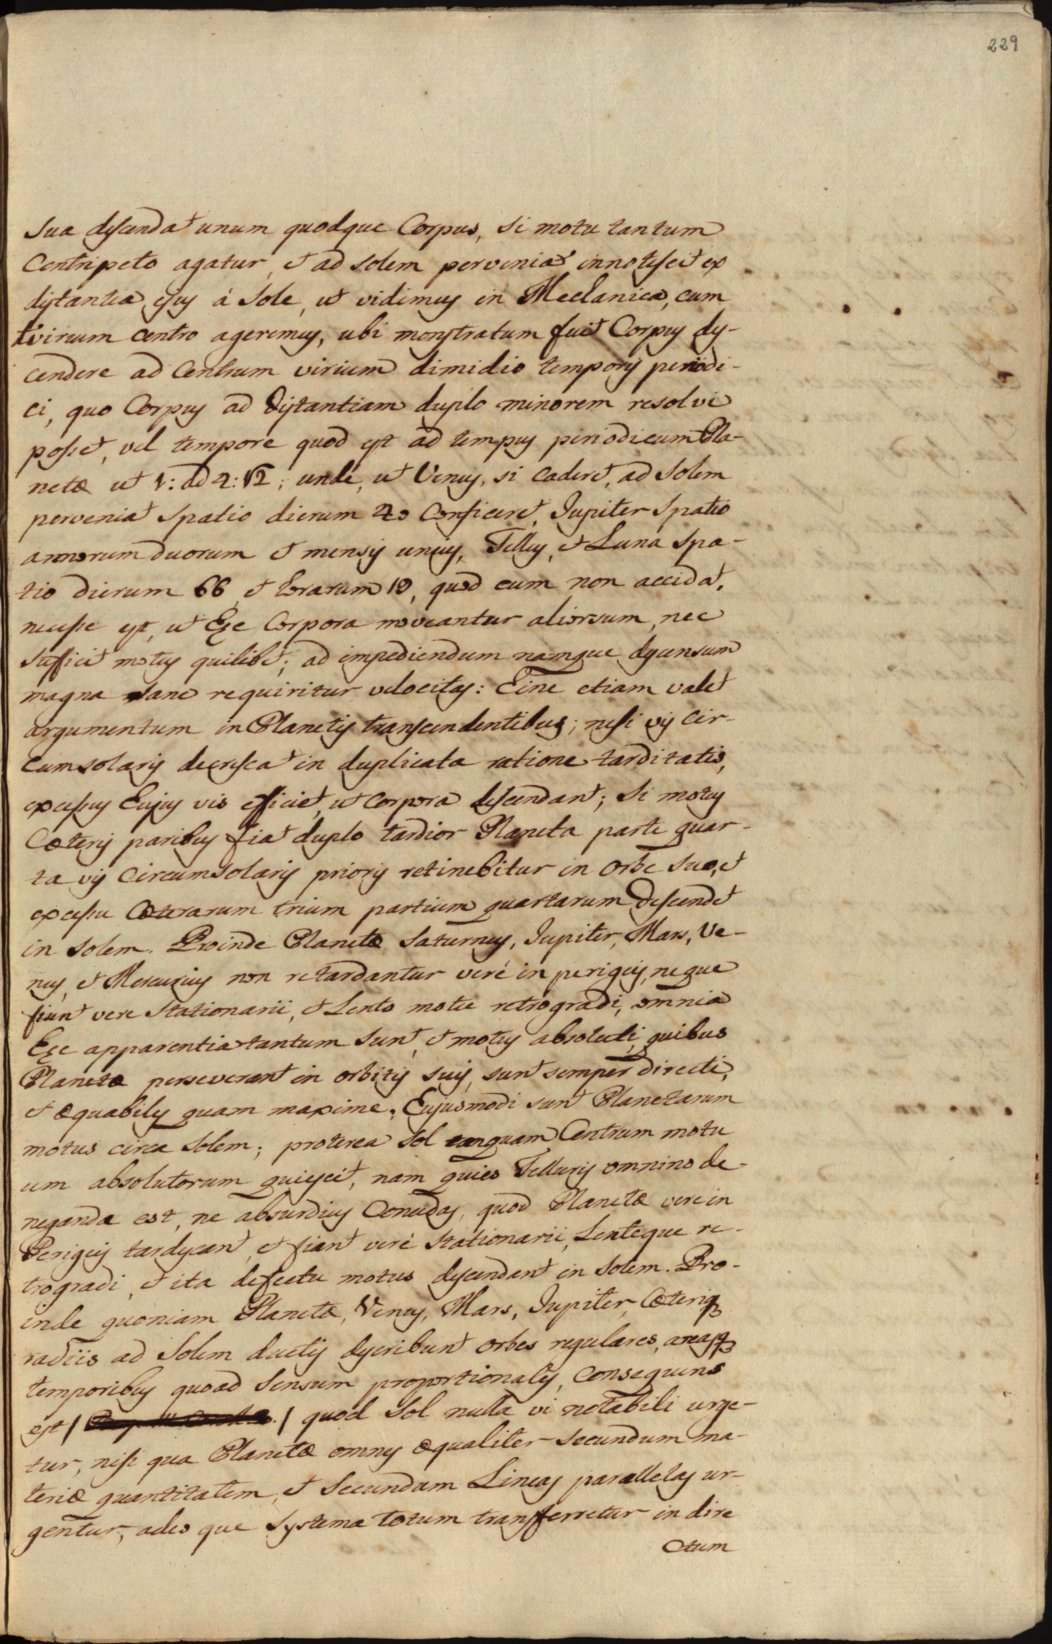 229
sua descendat unum quodque Corpus, si motu tantum
Centripeto agatur, et ad solem perveniat innotescit ex
distantia ejus á Sole, ut vidimus in Mechanica, cum
virium centro ageremus, ubi monstratum fuit Corpus des-
cendere ad Centrum virium dimidio temporis periodi-
ci, quo Corpus ad distantiam duplo minorem resolvi
posset, vel tempore quod est ad tempus periodicum Pla-
netæ ut 1: ad 4: √2; unde, ut Venus, si caderet, ad Solem
perveniat spatio dierum 40 conficeret, Jupiter spatio
annorum duorum et mensis unius, Tellus, et Luna spa-
tio dierum 66 et horarum 10, quod cum non accidat,
necesse est, ut hæc Corpora moveantur aliorsum, nec
sufficit motus quilibet; ad impediendum namque descensum
magna sane requiritur velocitas: hinc etiam valet
argumentum in Planetis transcendentibus; nisi vis cir-
cumsolaris decrescat in duplicata ratione tarditatis,
excessus hujus vis efficiet, ut corpora descendant; si motus
cæteris paribus fiat duplo tardior Planeta parte quar-
ta vis circumsolaris prioris retinebitur in orbe suo, et
excessu cæterarum trium partium quartarum descendet
in solem. Proinde Planetæ Saturnus, Jupiter, Mars, Ve-
nus, et Mercurius non retardantur veré in perigeis, neque
fiunt vere stationarii, et lento motu retrogradi, omnia
hæc apparentia tantum sunt, et motus absoluti, quibus
Planetæ perseverant in orbitis suis, sunt semper directi,
et æquabiles quam maxime. hujusmodi sunt Planetarum
motus circa solem; proterea sol tanquam Centrum motu
um absolutorum quiescit, nam quies Telluris omnino de-
neganda est, ne absurdius concedas, quod Planetæ vere in
Perigeis tardescant, et fiant veré stationarii, lenteque re-
trogradi, et ita defectu motus descendant in solem. Pro-
inde quoniam Planetæ, Venus, Mars, Jupiter, cæteriq
radiis ad solem ductis describunt orbes regulares, areasq
temporibus quoad sensum proportionales, consequens
est / / quod sol nulla vi notabili urge-
tur, nisi qua Planetæ omnes æqualiter secundum ma-
teriæ quantitatem, et secundum Lineas parallelas ur-
gentur, adeo que systema totum transferretur in dire
ctum